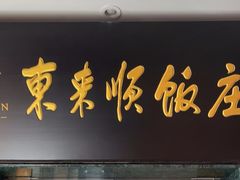 東来順飯庄